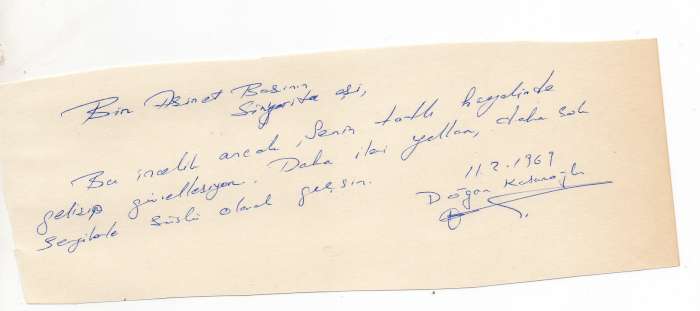 Bin Asmet Basının
Sinyorita eşi,
Bu incelik ancak, Senin tatlı hayalinde
gelişip güzelleşiyor. Daha iki yıllar, daha
sevgilerle süslü olarak geçsin.
11.2.1969
Doğan